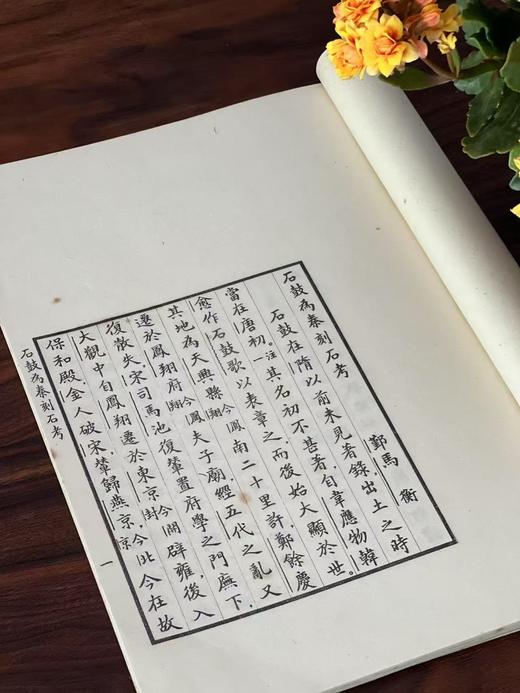 石鼓為秦刻石考
鄞馬 衡
石鼓在隋以前未見著錄出土之時
當在唐初。注一其名初不甚著自韋應物韓
愈作石鼓歌以表章之而後始大顯於世。
其地為天興縣今鳳翔南二十里許。鄭餘慶
遷於鳳翔府今鳳翔夫子廟。經五代之亂又
復散失。宋司馬池復輦置府學之門廡下。
大觀中自鳳翔遷於東京今開封辟雍後入
保和殿。金人破宋輦歸燕京今北京今在故
石鼓為秦刻石考
一